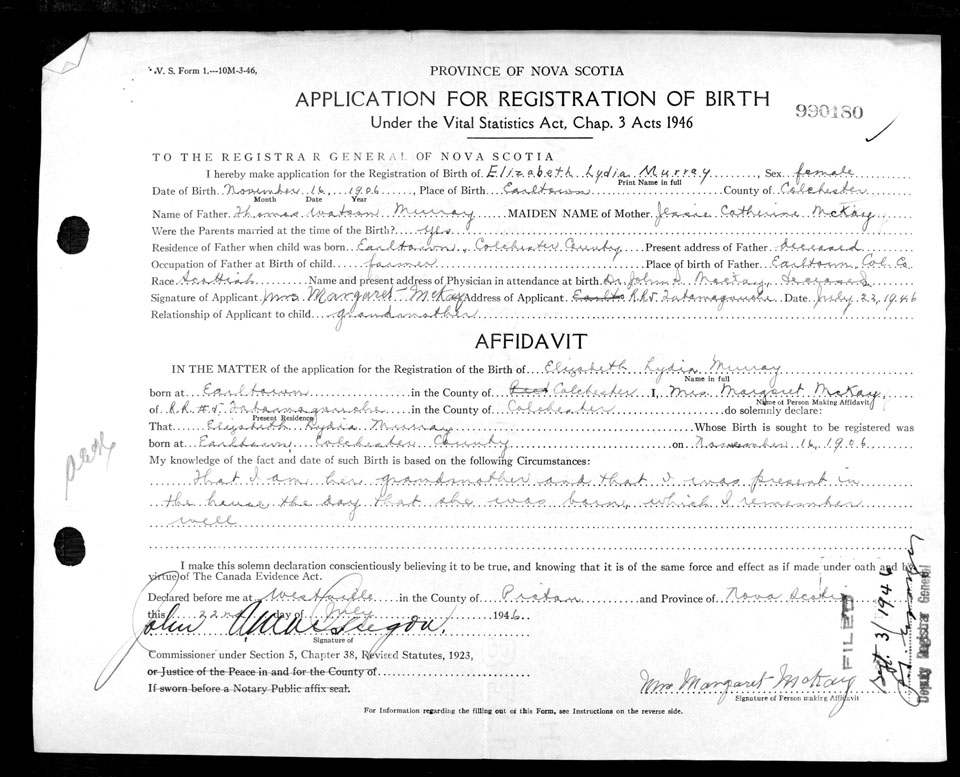 V. S. Form 1.---10M-3-46,
PROVINCE OF NOVA SCOTIA
APPLICATION FOR REGISTRATION OF BIRTH
990180
Under the Vital Statistics Act, Chap. 3 Acts 1946
TO THE REGISTRAR GENERAL OF NOVA SCOTIA
I hereby make application for the Registration of Birth of Elizabeth Lydia Murray, Sex female
Print Name in full
Date of Birth November 16, 1906, Place of Birth Earltown County of Colchester
Month Date Year
Name of Father Thomas Watson Murray MAIDEN NAME of Mother Jessie Catherine McKay
Were the Parents married at the time of the Birth? yes
Residence of Father when child was born Earltown, Colchester County Present address of Father deceased
Occupation of Father at Birth of child farmer Place of birth of Father Earltown Col. Co.
Race Scottish Name and present address of Physician in attendance at birth Dr. John S. deceased
Signature of Applicant Mrs Margaret McKay Address of Applicant R.R.5 Tatamagouche Date July 22, 1946
Relationship of Applicant to child grandmother
AFFIDAVIT
IN THE MATTER of the application for the Registration of the Birth of Elizabeth Lydia Murray
Name in full
born at Earltown in the County of Colchester I, Mrs Margaret McKay
Name of Person Making Affidavit
of R.R #5. Tatamagouche in the County of Colchester do solemnly declare:
Present Residence
That Elizabeth Lydia Murray Whose Birth is sought to be registered was
born at Earltown, Colchester County on November 16, 1906
My knowledge of the fact and date of such Birth is based on the following Circumstances:
That I am her grandmother and that I was present in
the house the day that she was born, which I remember
well
I make this solemn declaration conscientiously believing it to be true, and knowing that it is of the same force and effect as if made under oath and by
virtue of The Canada Evidence Act.
Declared before me at in the County of Pictou and Province of Nova Scotia
this 22nd day of July 1946
John
Signature of
Commissioner under Section 5, Chapter 38, Revised Statutes, 1923,
or Justice of the Peace in and for the County of
If sworn before a Notary Public affix seal.
Mrs Margaret McKay
Signature of Person making Affidavit
For Information regarding the filling out of this Form, see Instructions on the reverse side.
FILED
Sept. 3/1946
Deputy Registrar General